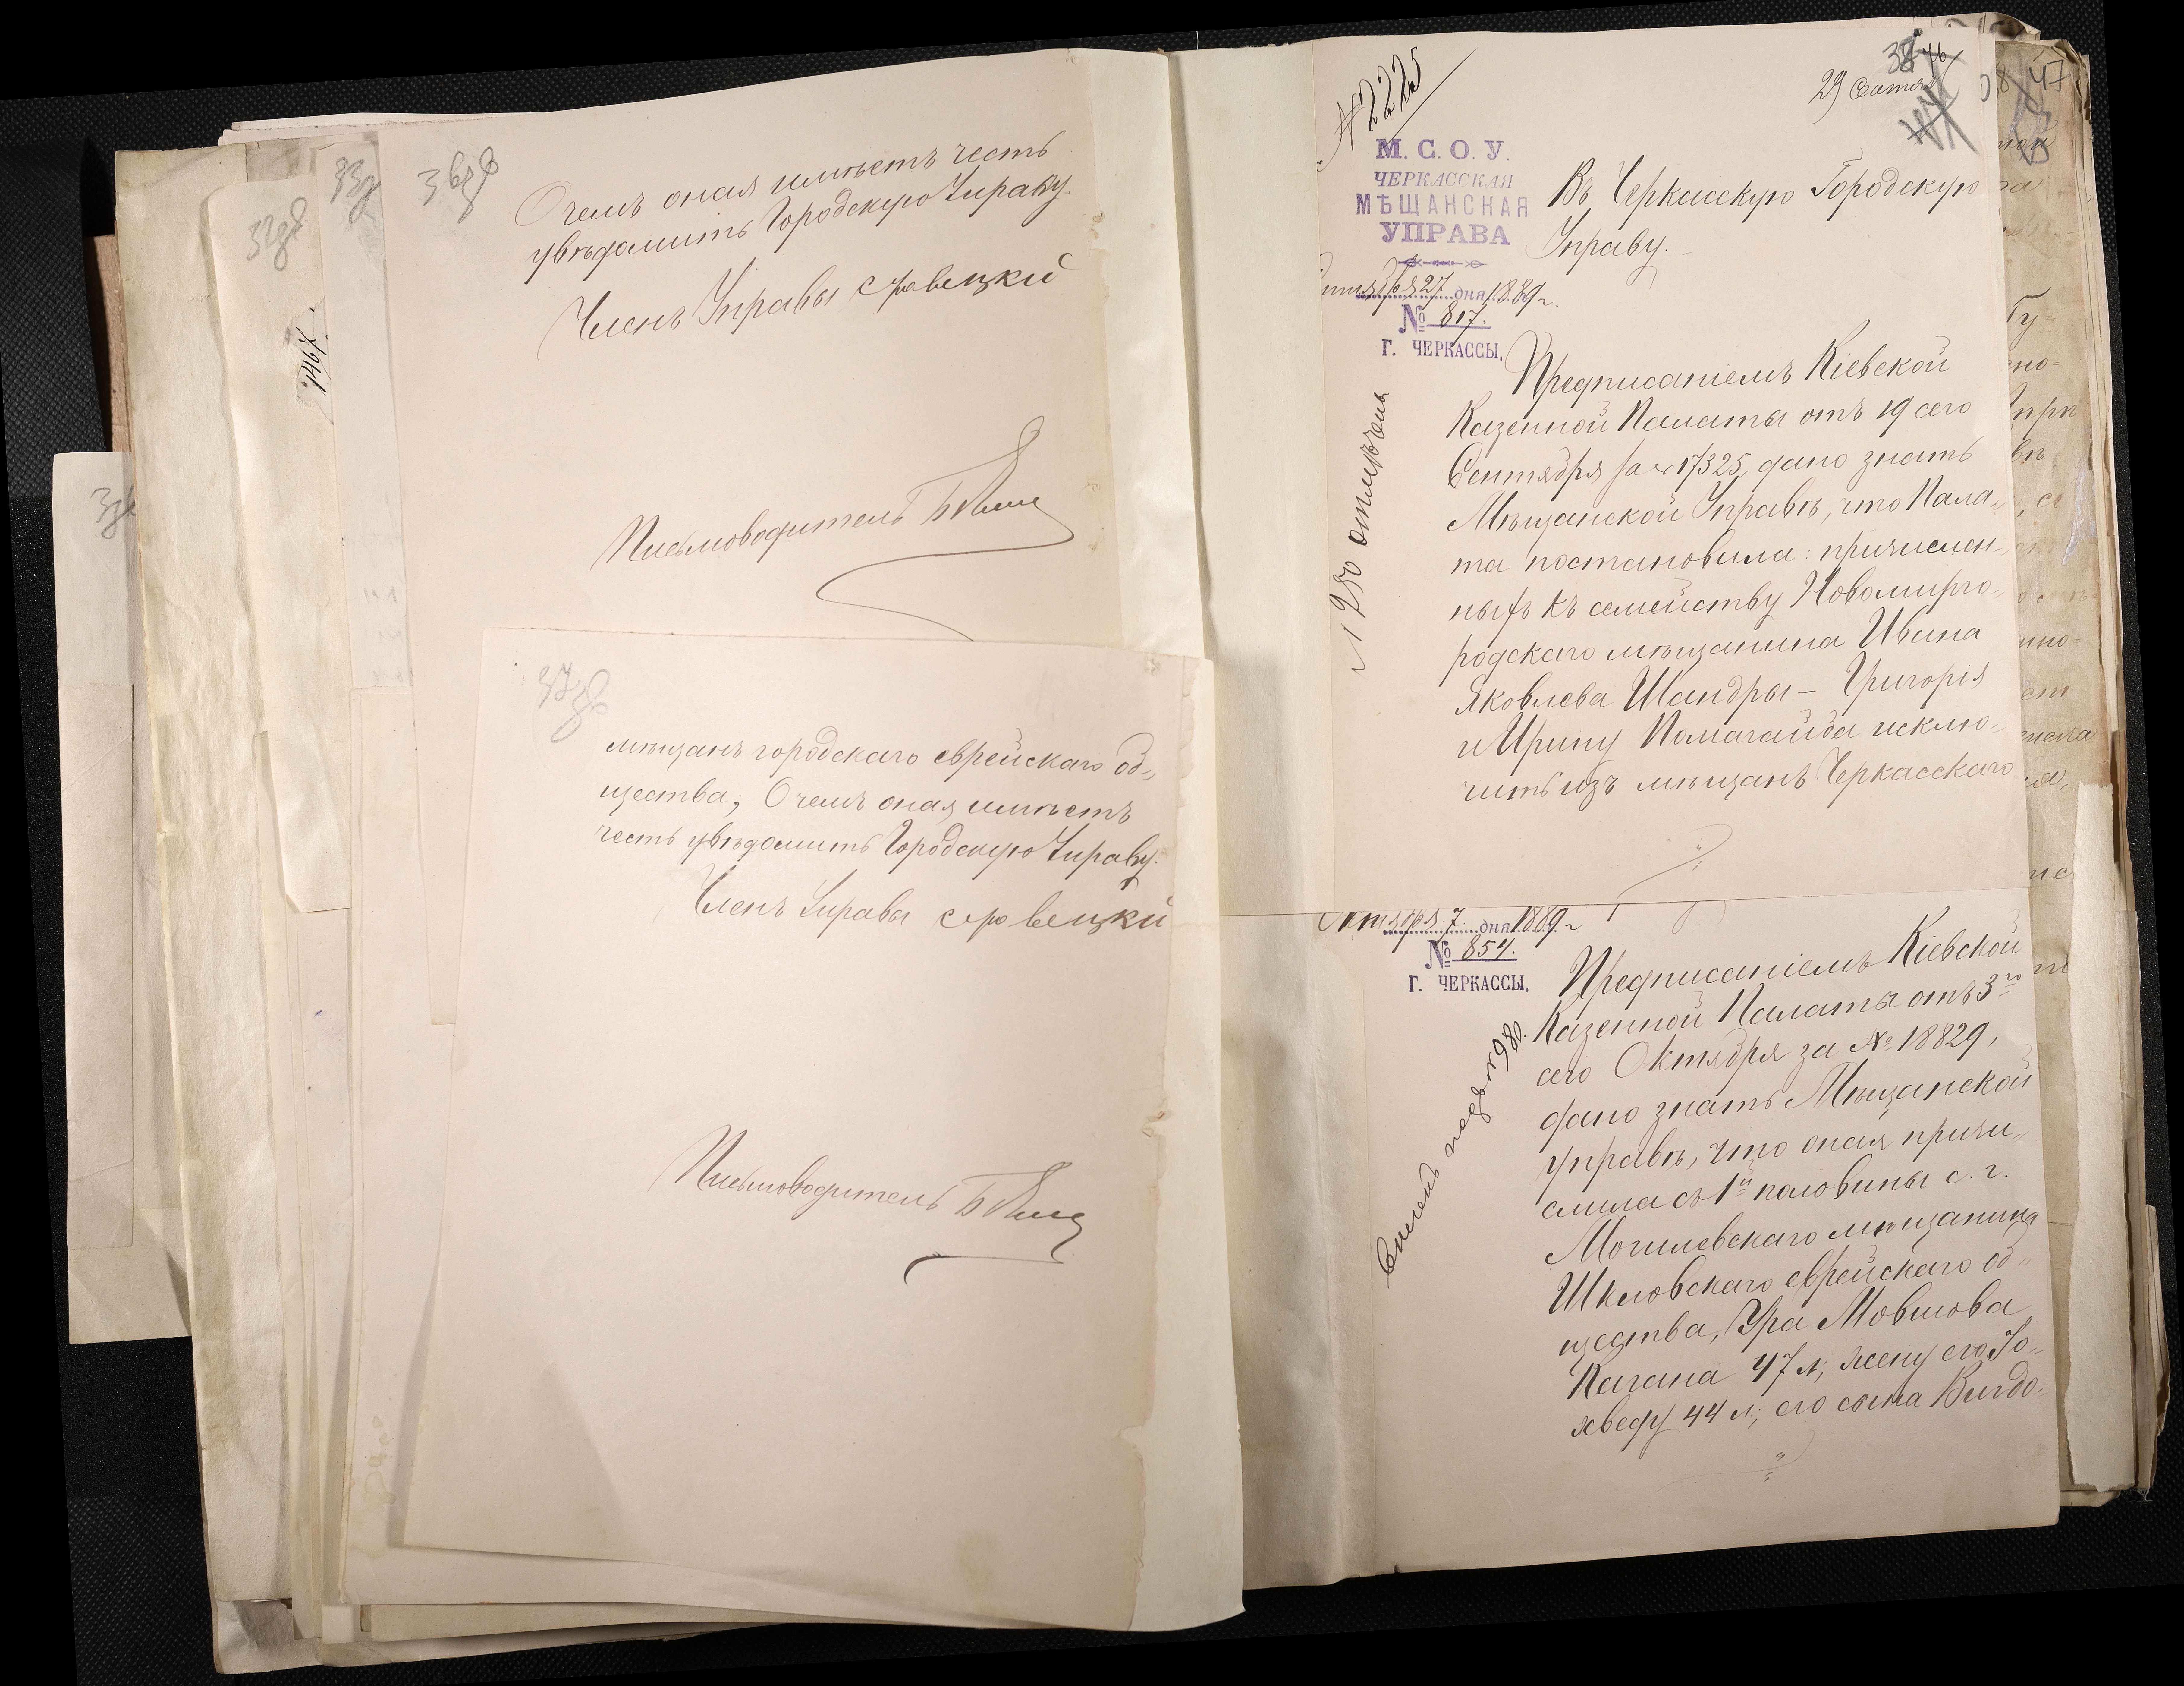 36зв
О чемъ оная имѣетъ честь
увѣдомить Городскую Управу.
Членъ Управы
Письмоводитель
37зв
мѣщанъ городскаго еврейскаго об„
щества; О чемъ оная имѣетъ
честь увѣдомить Городскую Управу.
Членъ Управы
Письмоводитель
32зв
1467
№ 2225
29 Сентяб
38
46
М. С. О. У.
ЧЕРКАССКАЯ
МѢЩАНСКАЯ
УПРАВА
27 дня 1889 г.
№ 817.
Г. ЧЕРКАССЫ,
Въ Черкасскую Городскую
Управу.
Предписаніемъ Кіевской
Казенной Палаты отъ 19 сего
Сентября за № 17325, дано знать
Мѣщанской Управѣ, что Пала„
та постановила: причислен„
ныхъ къ семейству Новомирго„
родскаго мѣщанина Ивана
Яковлева Шандры – Григорія
и Ирину Помагайба исклю„
чить изъ мѣщанъ Черкасскаго
Октября 7 дня 1889 г
№ 854.
Г. ЧЕРКАССЫ,
Предписаніемъ Кіевской
Казенной Палаты отъ 3го
сего Октября за № 18829,
дано знать Мѣщанской
управѣ, что оная причи„
слила съ 1й половины с. г.
Могилевскаго мѣщанина
Шкловскаго еврейскаго об„
щества, Мовшова
Кагана 47 л, жену его Іо„
хведу 44 л; его сына
47